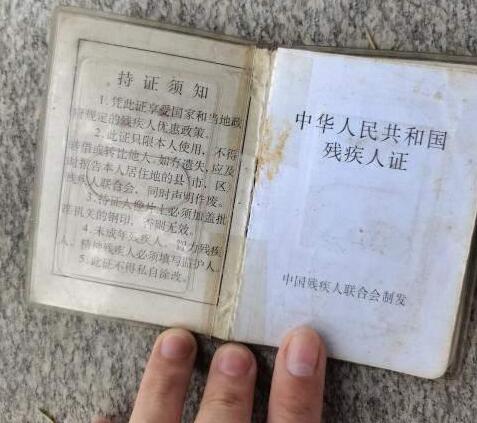 持证须知
1.凭此证享受国家和当地政
府规定的残疾人优惠政策。
2.此证只限本人使用,不得
转借或转让他人,如有遗失,应及
时报告本人居住地的县(市、区)
残疾人联合会,同时声明作废。
3.持证人像片上必须加盖批
准机关的钢印,否则无效。
4.未成年残疾人、智力残疾
人、精神残疾人必须填写监护人。
5.此证不得私自涂改。
中华人民共和国
残疾人证
中国残疾人联合会制发